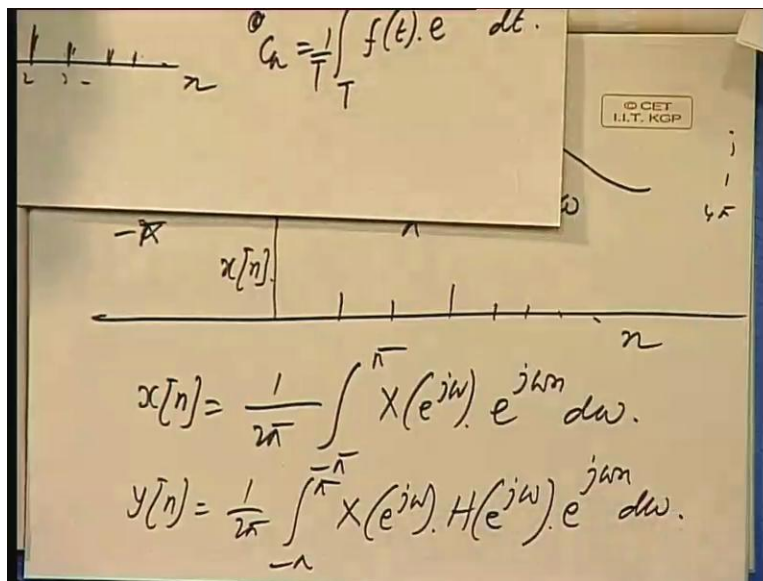 Cₙ = 1/T ∫_T f(t). e dt.
2 3
n
© CET
I.I.T. KGP
j
1
4π
-π π ω
x[n].
n
x[n] = 1/2π ∫_{-π}^{π} X(e^{jω}). e^{jωn} dω.
y[n] = 1/2π ∫_{-π}^{π} X(e^{jω}). H(e^{jω}). e^{jωn} dω.